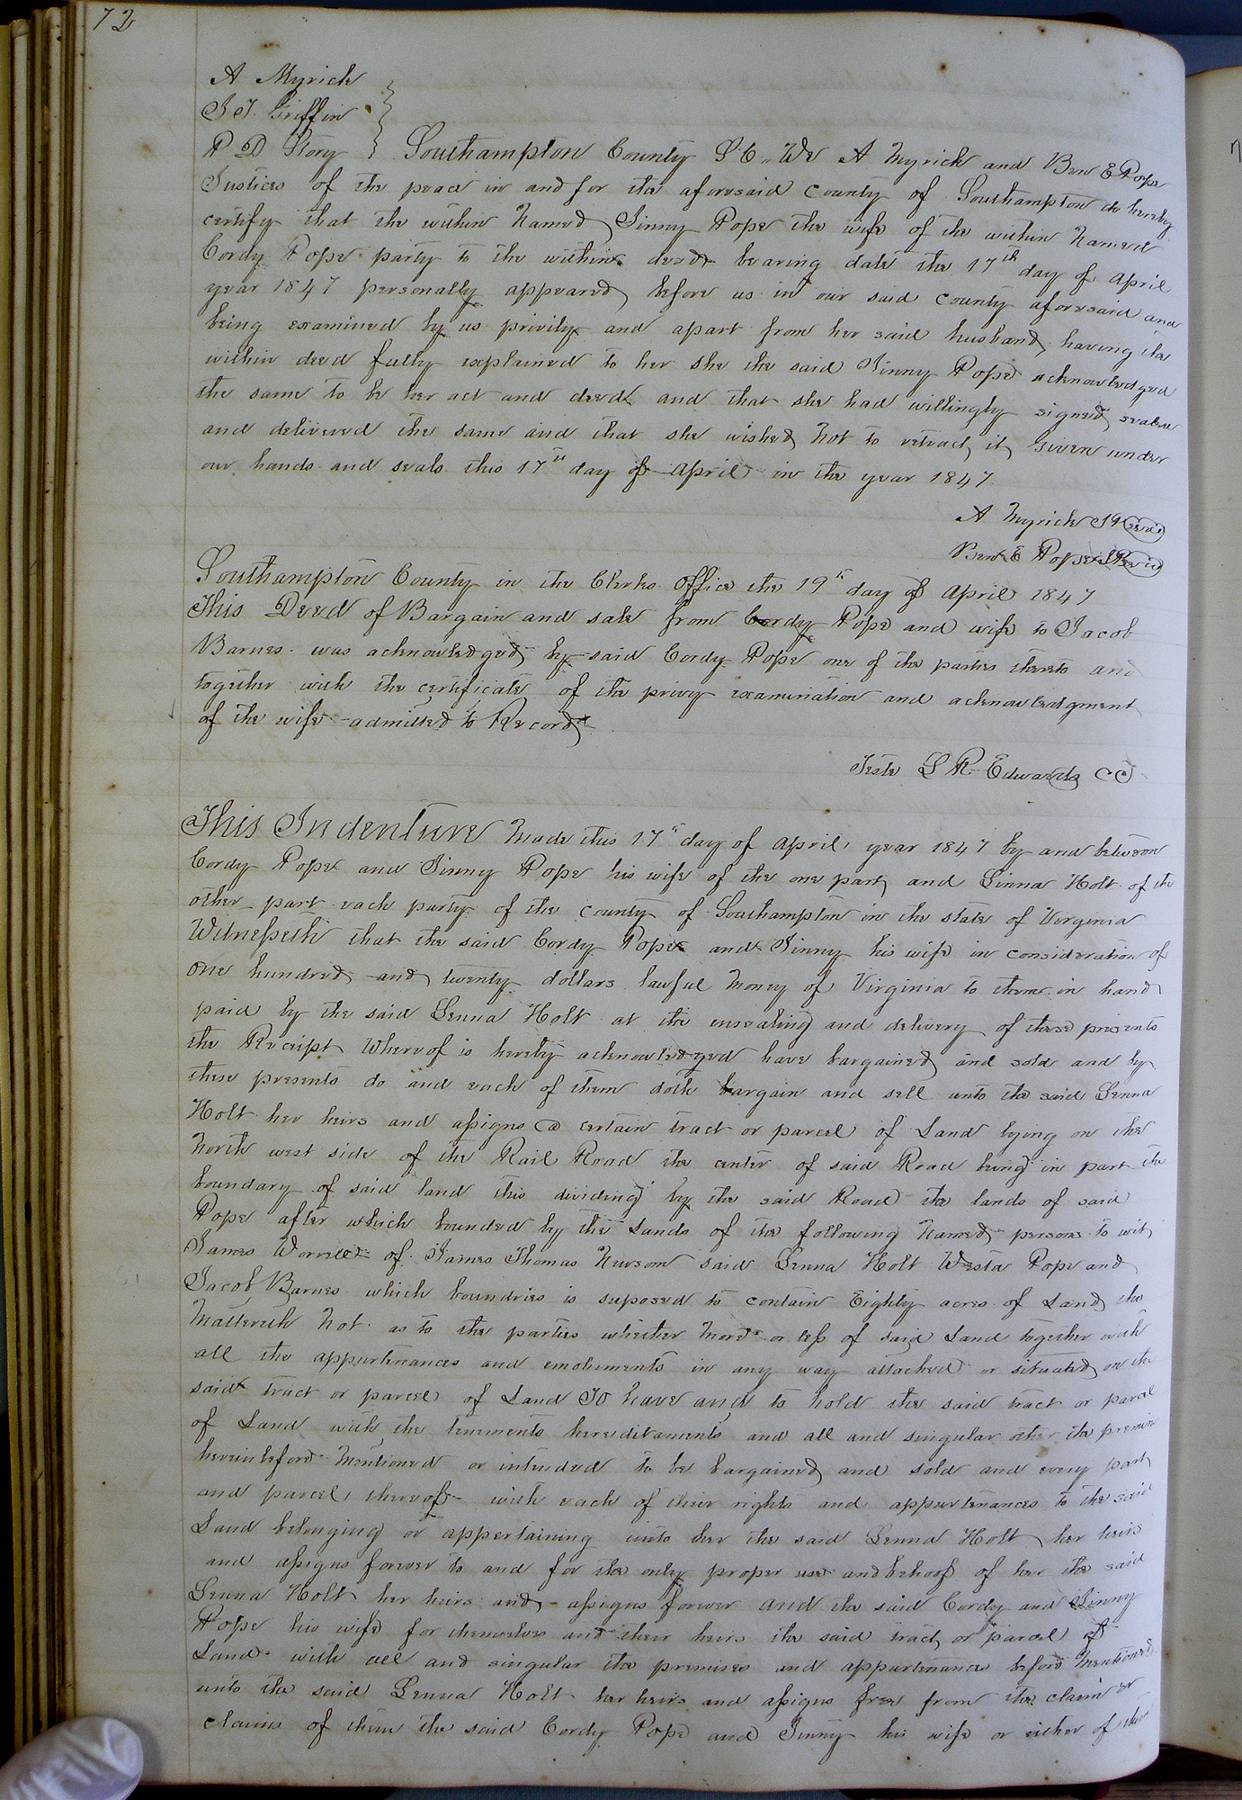 72
A Myrick
J. T. Griffin
P D Story } Southampton County S C. We A Myrick and Ben E Pope
Justices of the peace in and for the aforesaid County of Southampton do hereby
certify that the within Named Jinny Pope the wife of the within Named
Cordy Pope party to the within deed bearing date the 17th day of April
year 1847 personally appeared before us in our said County aforesaid and
being examined by us privily and apart from her said husband, having the
within deed fully explained to her she the said Jinny Pope acknowledged
the same to be her act and deed and that she had willingly signed, sealed
and delivered the same and that she wished not to retract it, Given under
our hands and seals this 17th day of April in the year 1847
A Myrick JP (seal)
Ben E Pope (seal)
Southampton County in the Clerks Office the 19th day of April 1847
This Deed of Bargain and sale from Cordy Pope and wife to Jacob
Barnes was acknowledged by said Cordy Pope one of the parties thereto and
together with the certificate of the privy examination and acknowledgment
of the wife admitted to Record
Teste L R. Edwards CC
This Indenture Made this 17th day of April, year 1847 by and between
Cordy Pope and Jinny Pope his wife of the one part, and Senna Holt of the
other part each party of the county of Southampton in the state of Virginia
Witnesseth that the said Cordy Pope and Jinny his wife in consideration of
one hundred and twenty dollars lawful Money of Virginia to them in hand
paid by the said Senna Holt at the ensealing and delivery of these presents
the Receipt Whereof is hereby acknowledged have bargained and sold and by
these presents do and each of them doth bargain and sell unto the said Senna
Holt her heirs and assigns a certain tract or parcel of Land lying on the
North west side of the Rail Road the center of said Road being in part the
boundary of said land this dividing by the said Road the lands of said
Pope after which bounded by the Lands of the following Named persons to wit,
James Worrell of James Thomas Newsom said Senna Holt Pope and
Jacob Barnes which boundries is suposed to contain Eighty acres of Land, the
Mattereth Not as to the parties whether More or less of said Land together with
all the appurtenances and emoluments in any way attached or situated on the
said tract or parcel of Land To have and to hold the said tract or parcel
of Land with the tenements hereditaments and all and singular other the premises
hereinbefore Mentioned or intended to be bargained and sold and every part
and parcel thereof with each of their rights and appurtenances to the said
Land belonging or appertaining unto her the said Senna Holt her heirs
and assigns forever to and for the only proper use and behoof of her the said
Senna Holt her heirs and assigns forever and the said Cordy and Jinny
Pope his wife for themselves and their heirs the said tract or parcel of
Land with all and singular the premises and appurtenances before Mentioned
unto the said Senna Holt her heirs and assigns free from the claim or
claims of them the said Cordy Pope and Jinny his wife or either of